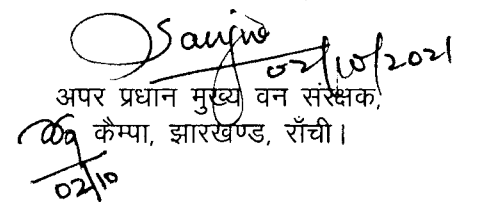 Sanjiv
02/10/2021
अपर प्रधान मुख्य वन संरक्षक,
कैम्पा, झारखण्ड, राँची।
02/10